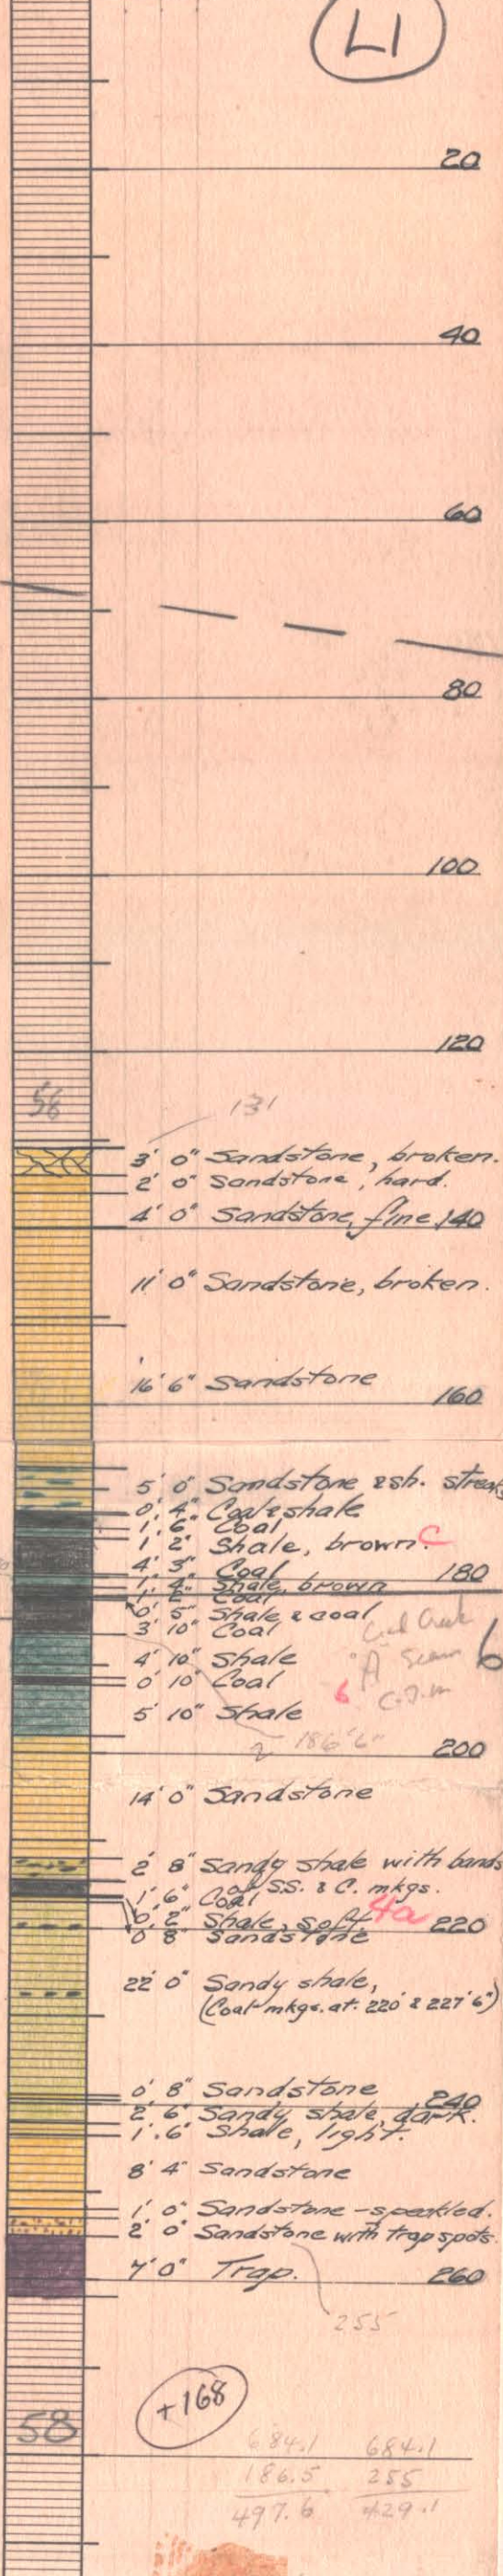 L1
20
40
60
80
100
120
56
131
3' 0" Sandstone, broken.
2' 0" Sandstone, hard.
4' 0" Sandstone, fine 140
11' 0" Sandstone, broken.
16' 6" Sandstone
160
5' 0" Sandstone & sh. streaks
0' 4" Coal & shale
1' 6" Coal
1' 2" Shale, brown. C
4' 3" Coal
180
1' 4" Shale, brown
1' 2" Coal
0' 5" Shale & coal
3' 10" Coal
Coal Creek
4' 10" Shale
"A" Seam 6
0' 10" Coal
6 C.J.M
5' 10" Shale
186' 6"
200
14' 0" Sandstone
2' 8" Sandy shale with bands
of S.S. & C. mkgs.
1' 6" Coal
4a
0' 2" Shale, soft.
220
0' 8" Sandstone
22' 0" Sandy shale,
(Coal mkgs. at. 220' & 227' 6")
0' 8" Sandstone
240
2' 6" Sandy shale, dark.
1' 6" Shale, light.
8' 4" Sandstone
1' 0" Sandstone - speckled.
2' 0" Sandstone with trap spots.
7' 0" Trap.
260
255
+168
58
684.1 684.1
186.5 255
497.6 429.1